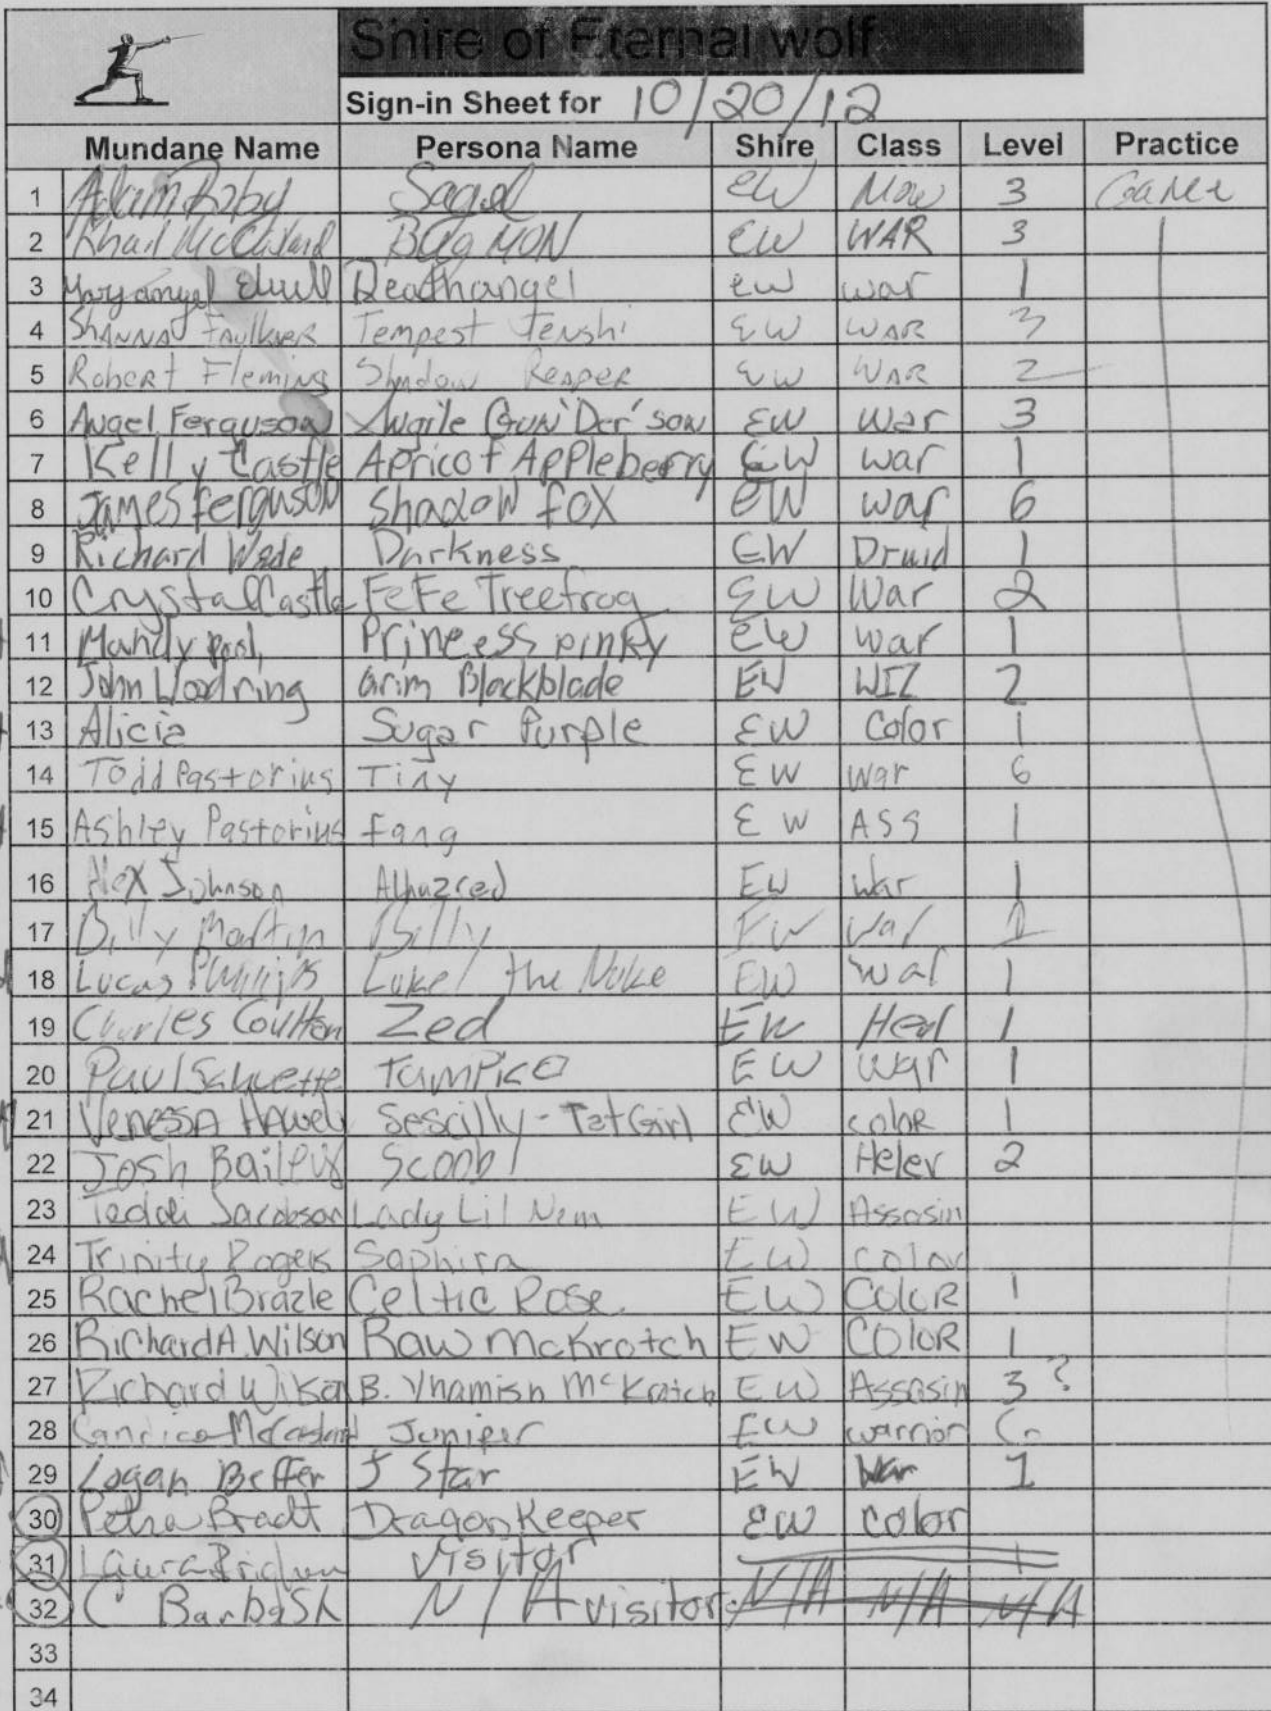 Shire of Eternal wolf
Sign-in Sheet for 10/20/12
Mundane Name Persona Name Shire Class Level Practice
1 Adam Roby EW 3 Game
2 EW WAR 3
3 Deathangel EW war 1
4 SHANNA FAULKNER Tempest Tenshi EW WAR 3
5 Robert Fleming Shadow Reaper EW WAR 2
6 Angel Ferguson EW War 3
7 Kelly Castle Apricot Appleberry EW war 1
8 James Ferguson Shadow Fox EW war 6
9 Richard Wade Darkness EW Druid 1
10 Crystal Castle FeFe Treefrog EW War 2
11 Mandy Princess pinky EW war 1
12 John Woodring Grim Blackblade EW WIZ 2
13 Alicia Sugar Purple EW Color 1
14 Todd Pastorius Tiny EW War 6
15 Ashley Pastorius Fang EW ASS 1
16 Alex Johnson EW War 1
17 Billy Martin Billy EW War 1
18 Lucas Phillips Luke the Nuke EW war 1
19 Charles Zed EW Heal 1
20 Paul Tampico EW war 1
21 Venessa EW color 1
22 Josh EW Heler 2
23 Jacobson Lady Lil Nem EW Assasin
24 Trinity Rogers Saphira EW color
25 Rachel Brazle Celtic Rose EW Color 1
26 Richard A. Wilson Raw McKrotch EW COloR 1
27 Richard Wilson B. EW Assasin 3?
28 Juniper EW warrior
29 Logan J Star EW War 1
30 Petra Bradt Dragon Keeper EW color
31 Laura visitor
32 C Barbash N/A visitor N/A N/A N/A
33
34